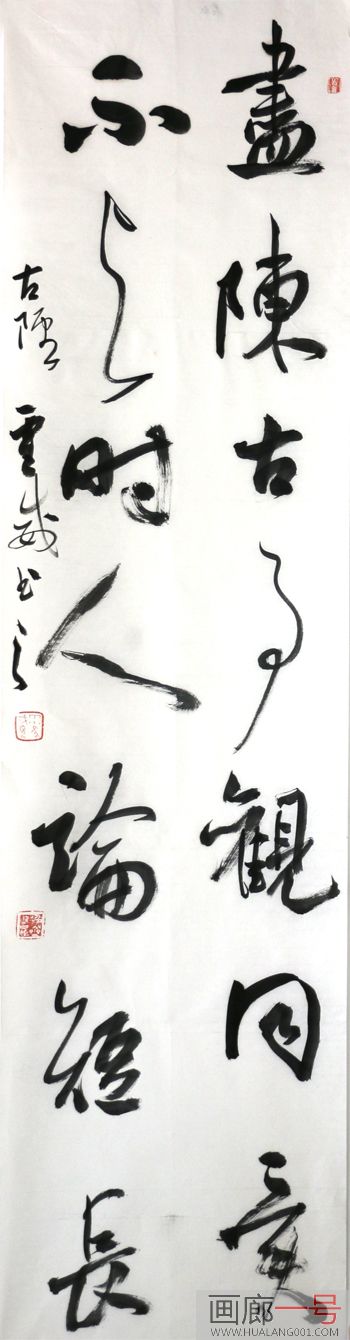 盡陳古事觀同
不与时人論短長
古 雲 书之
画廊一号
WWW.HUALANG001.COM